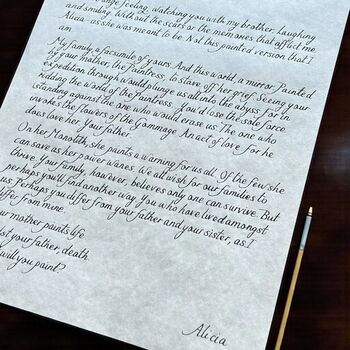 ange feeling, watching you with my brother. Laughing
and smiling. Without the scars or the memories that afflict me.
Alicia - as she was meant to be. Not this painted version that I
am.
My family, a facsimile of yours. And this world, a mirror. Painted
by your mother, the Paintress, to stave off her grief. Seeing your
expedition through would plunge us all into the abyss, for in
ridding the world of the Paintress, you'd lose the sole force
standing against the one who would erase us. The one who
invokes the flowers of the Gommage. An act of love, for he
does love her. Your father.
On her Monolith, she paints a warning for us all. Of the few she
can save as her power wanes. We all wish for our families to
thrive. Your family, however, believes only one can survive. But
perhaps you'll find another way. You who have lived amongst
us. Perhaps you differ from your father and your sister, as I
differ from mine.
our mother paints life.
your father, death.
will you paint?
Alicia